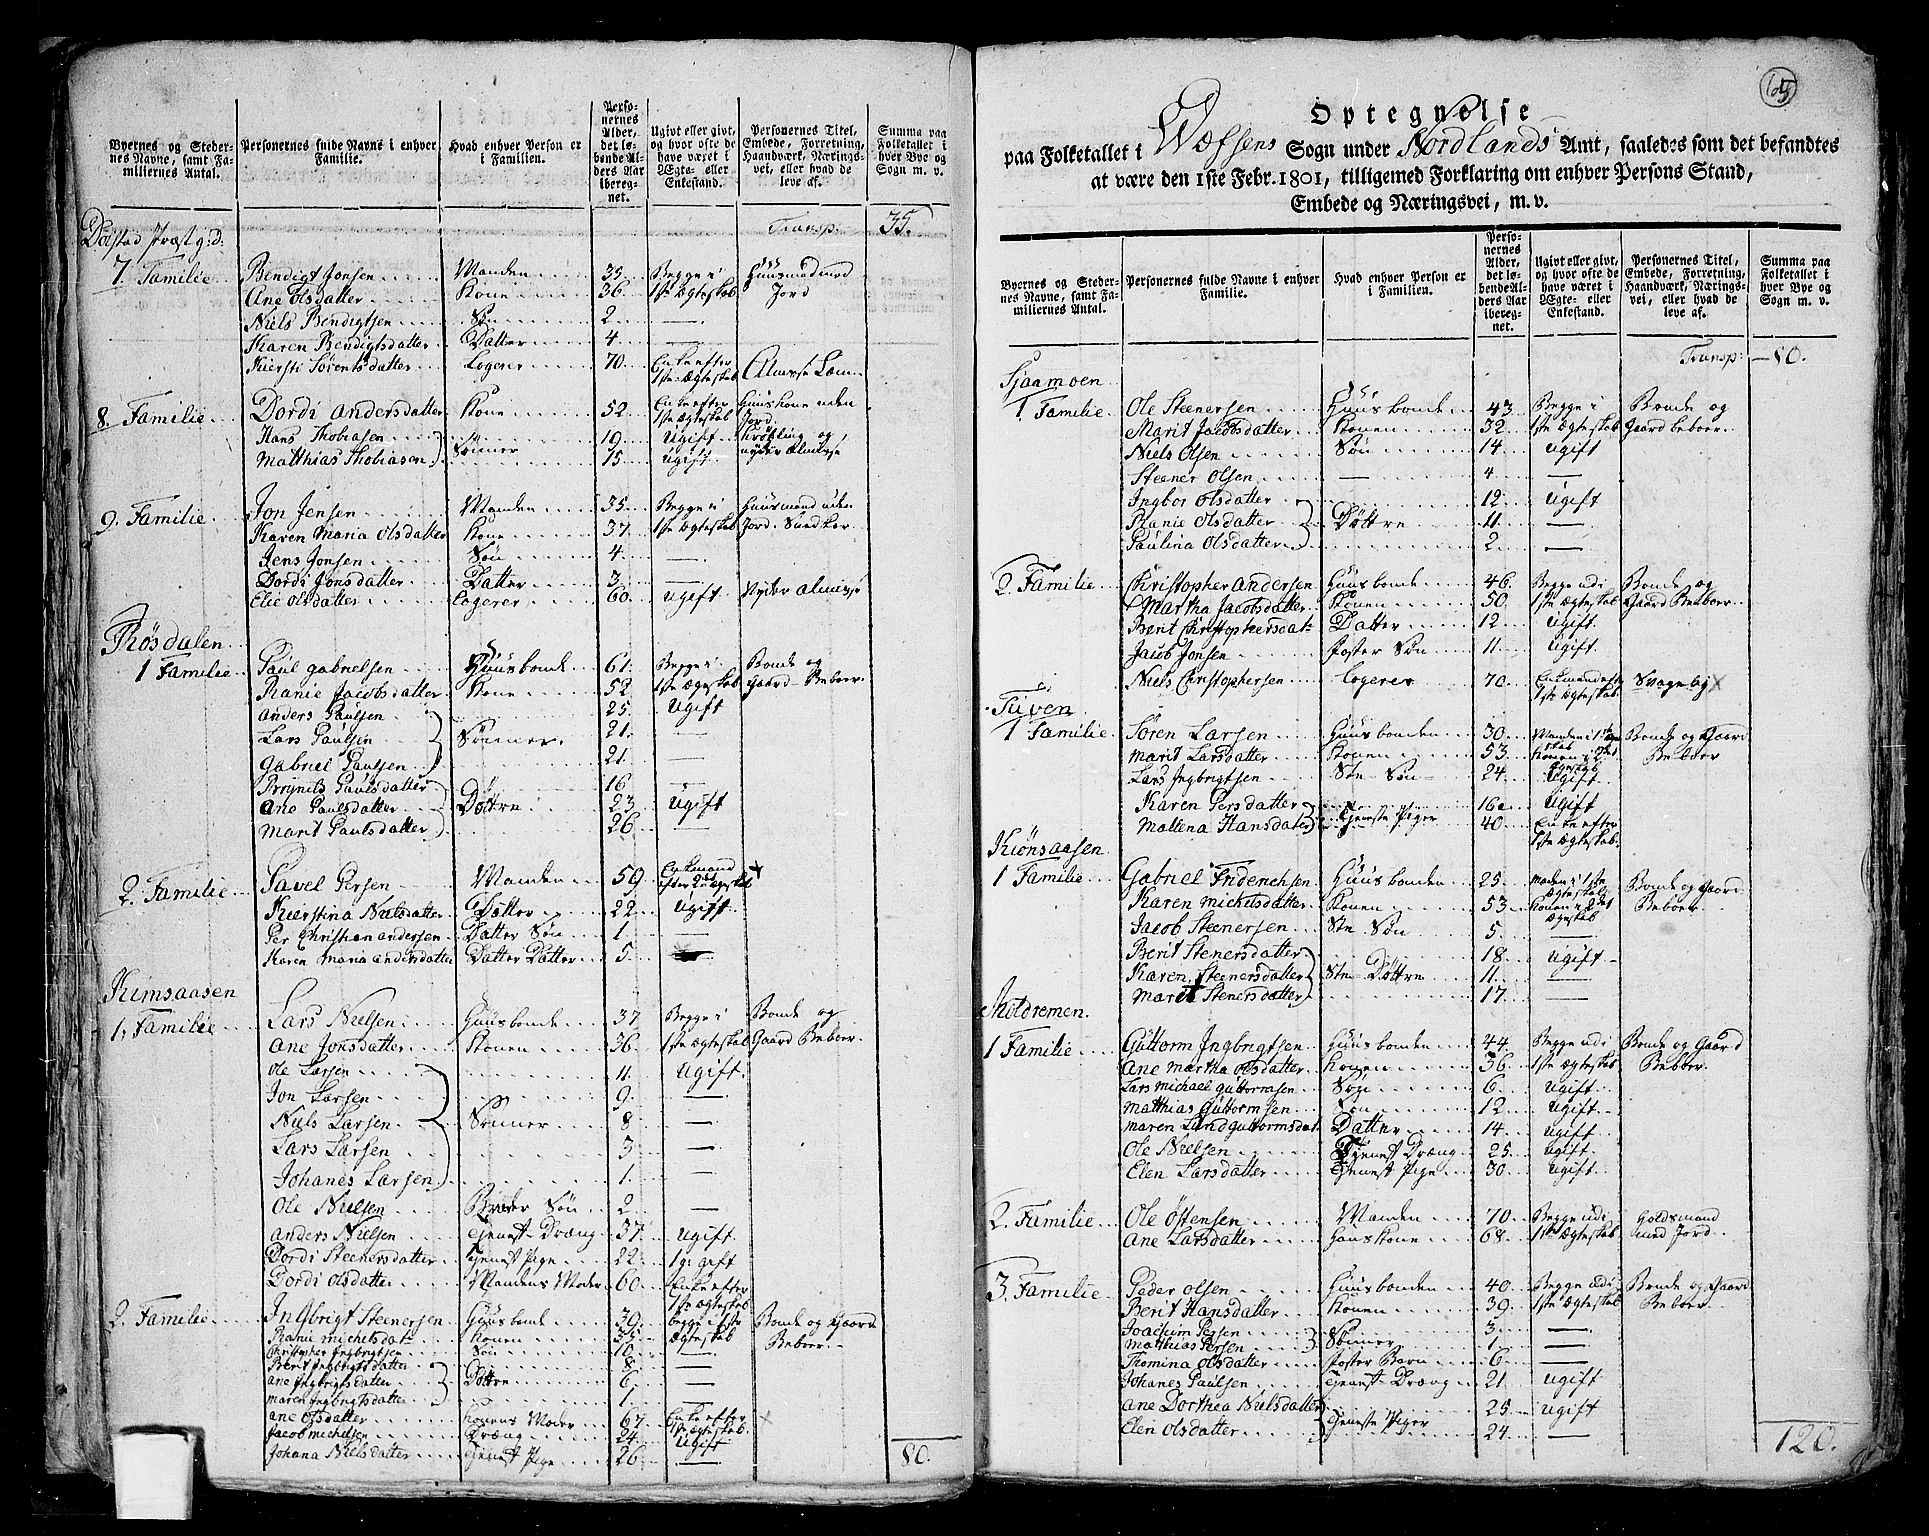 Byernes og Steder-
nes Navne, samt Fa-
miliernes Antal.
Personernes fulde Navne i enhver
Familie.
Hvad enhver Person er
i Familien.
Perso-
nernes
Alder,
det lø-
bende Al-
ders Aar
ibereg-
net.
Ugivt eller givt,
og hvor ofte de
have været i
Ægte- eller
Enkestand.
Personernes Titel,
Embede, Forretning,
Haandværk, Nærings-
vei, eller hvad de
leve af.
Summa paa
Folketallet i
hver Bye og
Sogn m. v.
Transp: 35.
7. Familie Bendigt Jonsen Manden 35 Begge i Huusmed med
Ane Olsdatter Kone 36 1ste Ægteskab Jord
Niels Bendigtsen Søn 2 —
Karen Bendigtsdatter Datter 4 —
Kiersti Sørensdatter Logerer 70 Enke efter 1ste Ægteskab Almisse Lem
8. Familie Dordi Andersdatter Kone 52 Enke efter 1ste Ægteskab Huuskone uden Jord
Hans Thobiasen Sønner 19 Ugift Krøbling og
Matthias Thobiasen 15 Ugift nyder Almisse
9. Familie Jon Jensen Manden 35 Begge i Huusmand uden
Karen Maria Olsdatter Kone 37 1ste Ægteskab Jord.
Jens Jonsen Søn 4 —
Dordi Jonsdatter Datter 3 —
Elie Olsdatter Logerer 60 Ugift Nyder Almisse
Røsdalen
1 Familie Paul Gabrielsen Huusbonde 61 Begge i Bonde og
Ranie Jacobsdatter Kone 52 1ste Ægteskab Gaard-Beboer
Anders Paulsen 25 Ugift
Lars Paulsen Sønner 21 —
Gabriel Paulsen 21 —
Brynild Paulsdatter 16 —
Ane Paulsdatter Døttre 23 Ugift
Marit Paulsdatter 26 —
2. Familie Pavel Persen Manden 59 Enkemand efter 2det Ægteskab
Kierstina Nielsdatter Datter 22 Ugift
Per Christian Andersen Datter Søn 1 —
Karen Maria Andersdatter Datter Datter 5 —
Remsaasen
1. Familie Lars Nielsen Huusbonde 37 Begge i Bonde og
Ane Jonsdatter Konen 36 1ste Ægteskab Gaard Beboer
Ole Larsen 11 Ugift
Jon Larsen 9 —
Niels Larsen Sønner 8 —
Lars Larsen 3 —
Johanes Larsen 1 —
Ole Nielsen Broder Søn 2 —
Anders Nielsen Tjenest-Dræng 37 Ugift
Dordi Steenersdatter Tjenest Pige 22
Dordi Olsdatter Mandens Moder 60 Enke efter 1ste Ægteskab
2. Familie Ingbrigt Steenersen Huusbonde 39 Begge i 1ste Bonde og Gaard
Ranie Michelsdat: Konen 35 Ægteskab Beboer
Christopher Ingbrigtsen Søn 10 —
Berit Ingbrigtsdatter 8 —
Ane Ingbrigtsdatter Døttre 6 —
Maren Ingbrigtsdatter 1 —
Ane Olsdatter Konens Moder 67 Enke efter 1ste Ægteskab
Jacob Michelsen Dræng 24 Ugift
Johana Nielsdatter Tjenest Pige 26 —
80.
65
Optegnelse
paa Folketallet i Wefsens Sogn under Nordlands Amt, saaledes som det befandtes
at være den 1ste Febr. 1801, tilligemed Forklaring om enhver Persons Stand,
Embede og Næringsvei, m. v.
Byernes og Steder-
nes Navne, samt Fa-
miliernes Antal.
Personernes fulde Navne i enhver
Familie.
Hvad enhver Person er
i Familien.
Perso-
nernes
Alder,
det lø-
bende Al-
ders Aar
ibereg-
net.
Ugivt eller givt,
og hvor ofte de
have været i
Ægte- eller
Enkestand.
Personernes Titel,
Embede, Forretning,
Haandværk, Nærings-
vei, eller hvad de
leve af.
Summa paa
Folketallet i
hver Bye og
Sogn m. v.
Transp: — 80.
Sjaamoen
1 Familie Ole Steenersen Huusbonde 43 Begge i Bonde og
Marit Jacobsdatter Konen 32 1ste Ægteskab Gaard Beboer
Niels Olsen Søn 14 Ugift
Steener Olsen — 4 —
Ingbor Olsdatter 12 Ugift
Ranie Olsdatter Døttre 11 —
Paulina Olsdatter 2 —
2 Familie Christopher Andersen Huusbonde 46 Begge udi Bonde og
Martha Jacobsdatter Konen 50 1ste Ægteskab Gaard Beboer
Berit Christophersdat- Datter 12 Ugift
Jacob Jonsen Foster Søn 11 Ugift
Niels Christophersen Logerer 70 Enkemand efter 1ste Ægteskab Svagelig
Tuven
1 Familie Søren Larsen Huusbonde 30 Manden i 1ste Ægteskab Bonde og Gaard
Marit Larsdatter Konen 53 Konen i 2det Ægteskab Beboer
Lars Ingbrigtsen Ste Søn 24 Ugift
Karen Persdatter Tjeneste Piger 16 Ugift
Mallena Hansdatter 40 Enke efter 1ste Ægteskab
Kiønsaasen
1 Familie Gabriel Friderichsen Huusbonden 25 Manden i 1ste Ægteskab Bonde og Gaard
Karen Michelsdatter Konen 53 Konen i 2det Ægteskab Beboer
Jacob Steenersen Ste Søn 5 —
Berit Stenersdatter 18 Ugift
Karen Steenersdatter Ste-Døttre 11 —
Marit Stenersdatter 17 —
Holdremen.
1 Familie Guttorm Ingbrigtsen Huusbonden 44 Begge udi Bonde og Gaard
Ane Martha Olsdatter Konen 36 1ste Ægteskab Beboer
Lars Michael Guttormsen Søn 6 Ugift
Matthias Guttormsen Søn 12 Ugift
Maren Lund Guttormsdat Datter 14 Ugift
Ole Nielsen Tjenest Dræng 25 Ugift
Elen Larsdatter Tjenest Pige 30 Ugift
2. Familie Ole Østensen Manden 70 Begge udi Goldsmand
Ane Larsdatter Hans Kone 68 1ste Ægteskab med Jord
3. Familie Peder Olsen Huusbonden 40 Begge udi Bonde og Gaard
Berit Hansdatter Konen 39 1ste Ægteskab Beboer
Joachum Persen Sønner 3 —
Matthias Persen 1 —
Thomina Olsdatter Foster Barn 6 —
Johanes Paulsen Tjenest-Dræng 21 Ugift
Ane Dorthea Nielsdatter Tjeneste Piger 25 Ugift
Elen Olsdatter 24 —
120.